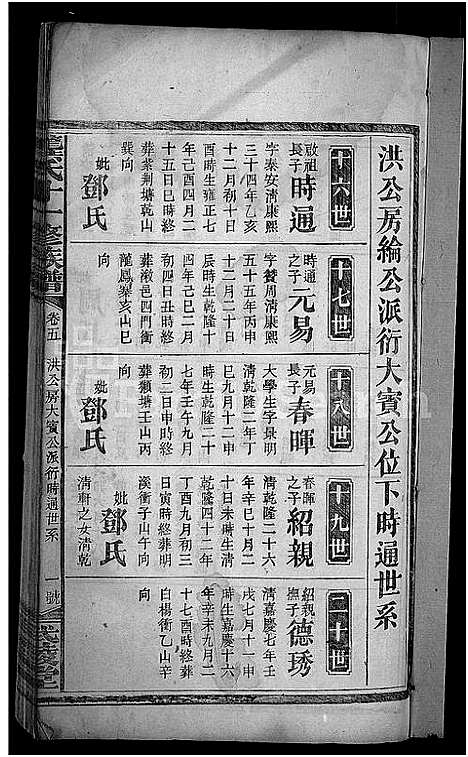 洪公房綸公派衍大賓公位下時通世系
十六世
啟祖
長子
時通
字泰安清康熙
三十四年乙亥
十二月初十日
酉時生雍正七
年己酉四月二
十五日巳時終
葬紫荆塘乾山
巽向
妣鄧氏
十七世
時通
之子
元易
字贊周清康熙
五十五年丙申
十二月二十日
辰時生乾隆十
四年己巳二月
初四日丑時終
葬漵邑四門衝
龍鳳寨亥山巳
向
十八世
元易
長子
春暉
大學生字景明
清乾隆二年丁
巳九月十二申
時生乾隆二十
七年壬午九月
初二日申時終
葬類塘壬山丙
向
妣鄧氏
十九世
春暉
之子
紹親
清乾隆二十六
年辛巳十月二
十日未時生清
乾隆四十二年
丁酉九月初三
日寅時終葬明
溪衝子山午向
妣鄧氏
清軒之女清乾
二十世
紹親
撫子
德琇
清嘉慶七年壬
戌七月十一申
時生嘉慶十六
年辛未九月二
十七酉時終葬
白楊衝乙山辛
向
氏十一修族譜
卷五
洪公房大賓公派衍時通世系
一號